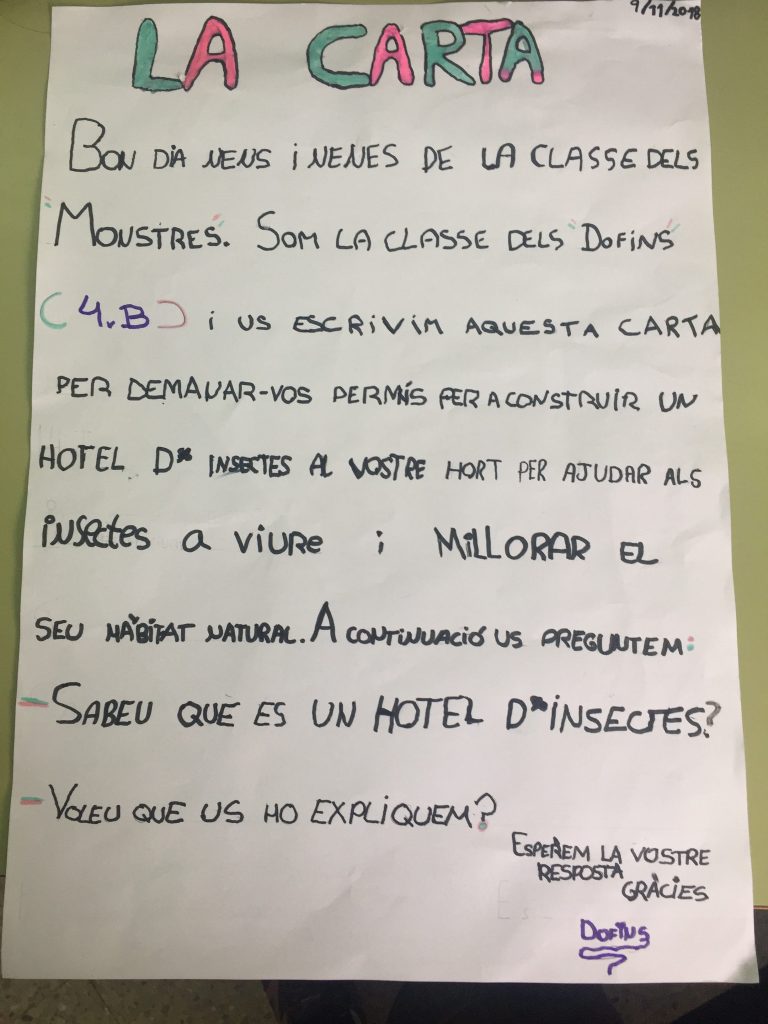 9/11/2018
LA CARTA
BON DIA NENS I NENES DE LA CLASSE DELS
"MONSTRES". SOM LA CLASSE DELS "DOFINS"
(4.B) I US ESCRIVIM AQUESTA CARTA
PER DEMANAR-VOS PERMÍS PER A CONSTRUIR UN
HOTEL D* INSECTES AL VOSTRE HORT PER AJUDAR ALS
INSECTES A VIURE I MILLORAR EL
SEU HÀBITAT NATURAL. A CONTINUACIÓ US PREGUNTEM:
- SABEU QUE ES UN HOTEL D*INSECTES?
- VOLEU QUE US HO EXPLIQUEM?
ESPEREM LA VOSTRE
RESPOSTA
GRÀCIES
DOFINS